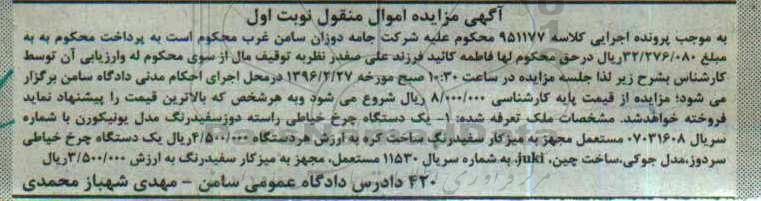 آگهی مزایده اموال منقول نوبت اول
به موجب پرونده اجرایی کلاسه ۹۵۱۱۷۷ محکوم علیه شرکت جامه دوزان سامن غرب محکوم است به پرداخت محکوم به به
مبلغ ۳۲/۲۷۶/۰۸۰ریال درحق محکوم لها فاطمه کائید فرزند علی صفدر نظربه توقیف مال از سوی محکوم له وارزیابی آن توسط
کارشناس بشرح زیر لذا جلسه مزایده در ساعت ۱۰:۳۰ صبح مورخه ۱۳۹۶/۲/۲۷ درمحل اجرای احکام مدنی دادگاه سامن برگزار
می شود؛ مزایده از قیمت پایه کارشناسی ۸/۰۰۰/۰۰۰ ریال شروع می شود وبه هرشخص که بالاترین قیمت را پیشنهاد نماید
فروخته خواهدشد. مشخصات ملک تعرفه شده: ۱- یک دستگاه چرخ خیاطی راسته دوزسفیدرنگ مدل یونیکورن با شماره
سریال ۰۷۰۳۱۶۰۸ مستعمل مجهز به میزکار سفیدرنگ ساخت کره به ارزش هردستگاه ۴/۵۰۰/۰۰۰ریال یک دستگاه چرخ خیاطی
سردوز،مدل جوکی،ساخت چین، juki، به شماره سریال ۱۱۵۳۰ مستعمل، مجهز به میزکار سفیدرنگ به ارزش ۳/۵۰۰/۰۰۰ریال
۴۲۰ دادرس دادگاه عمومی سامن - مهدی شهباز محمدی